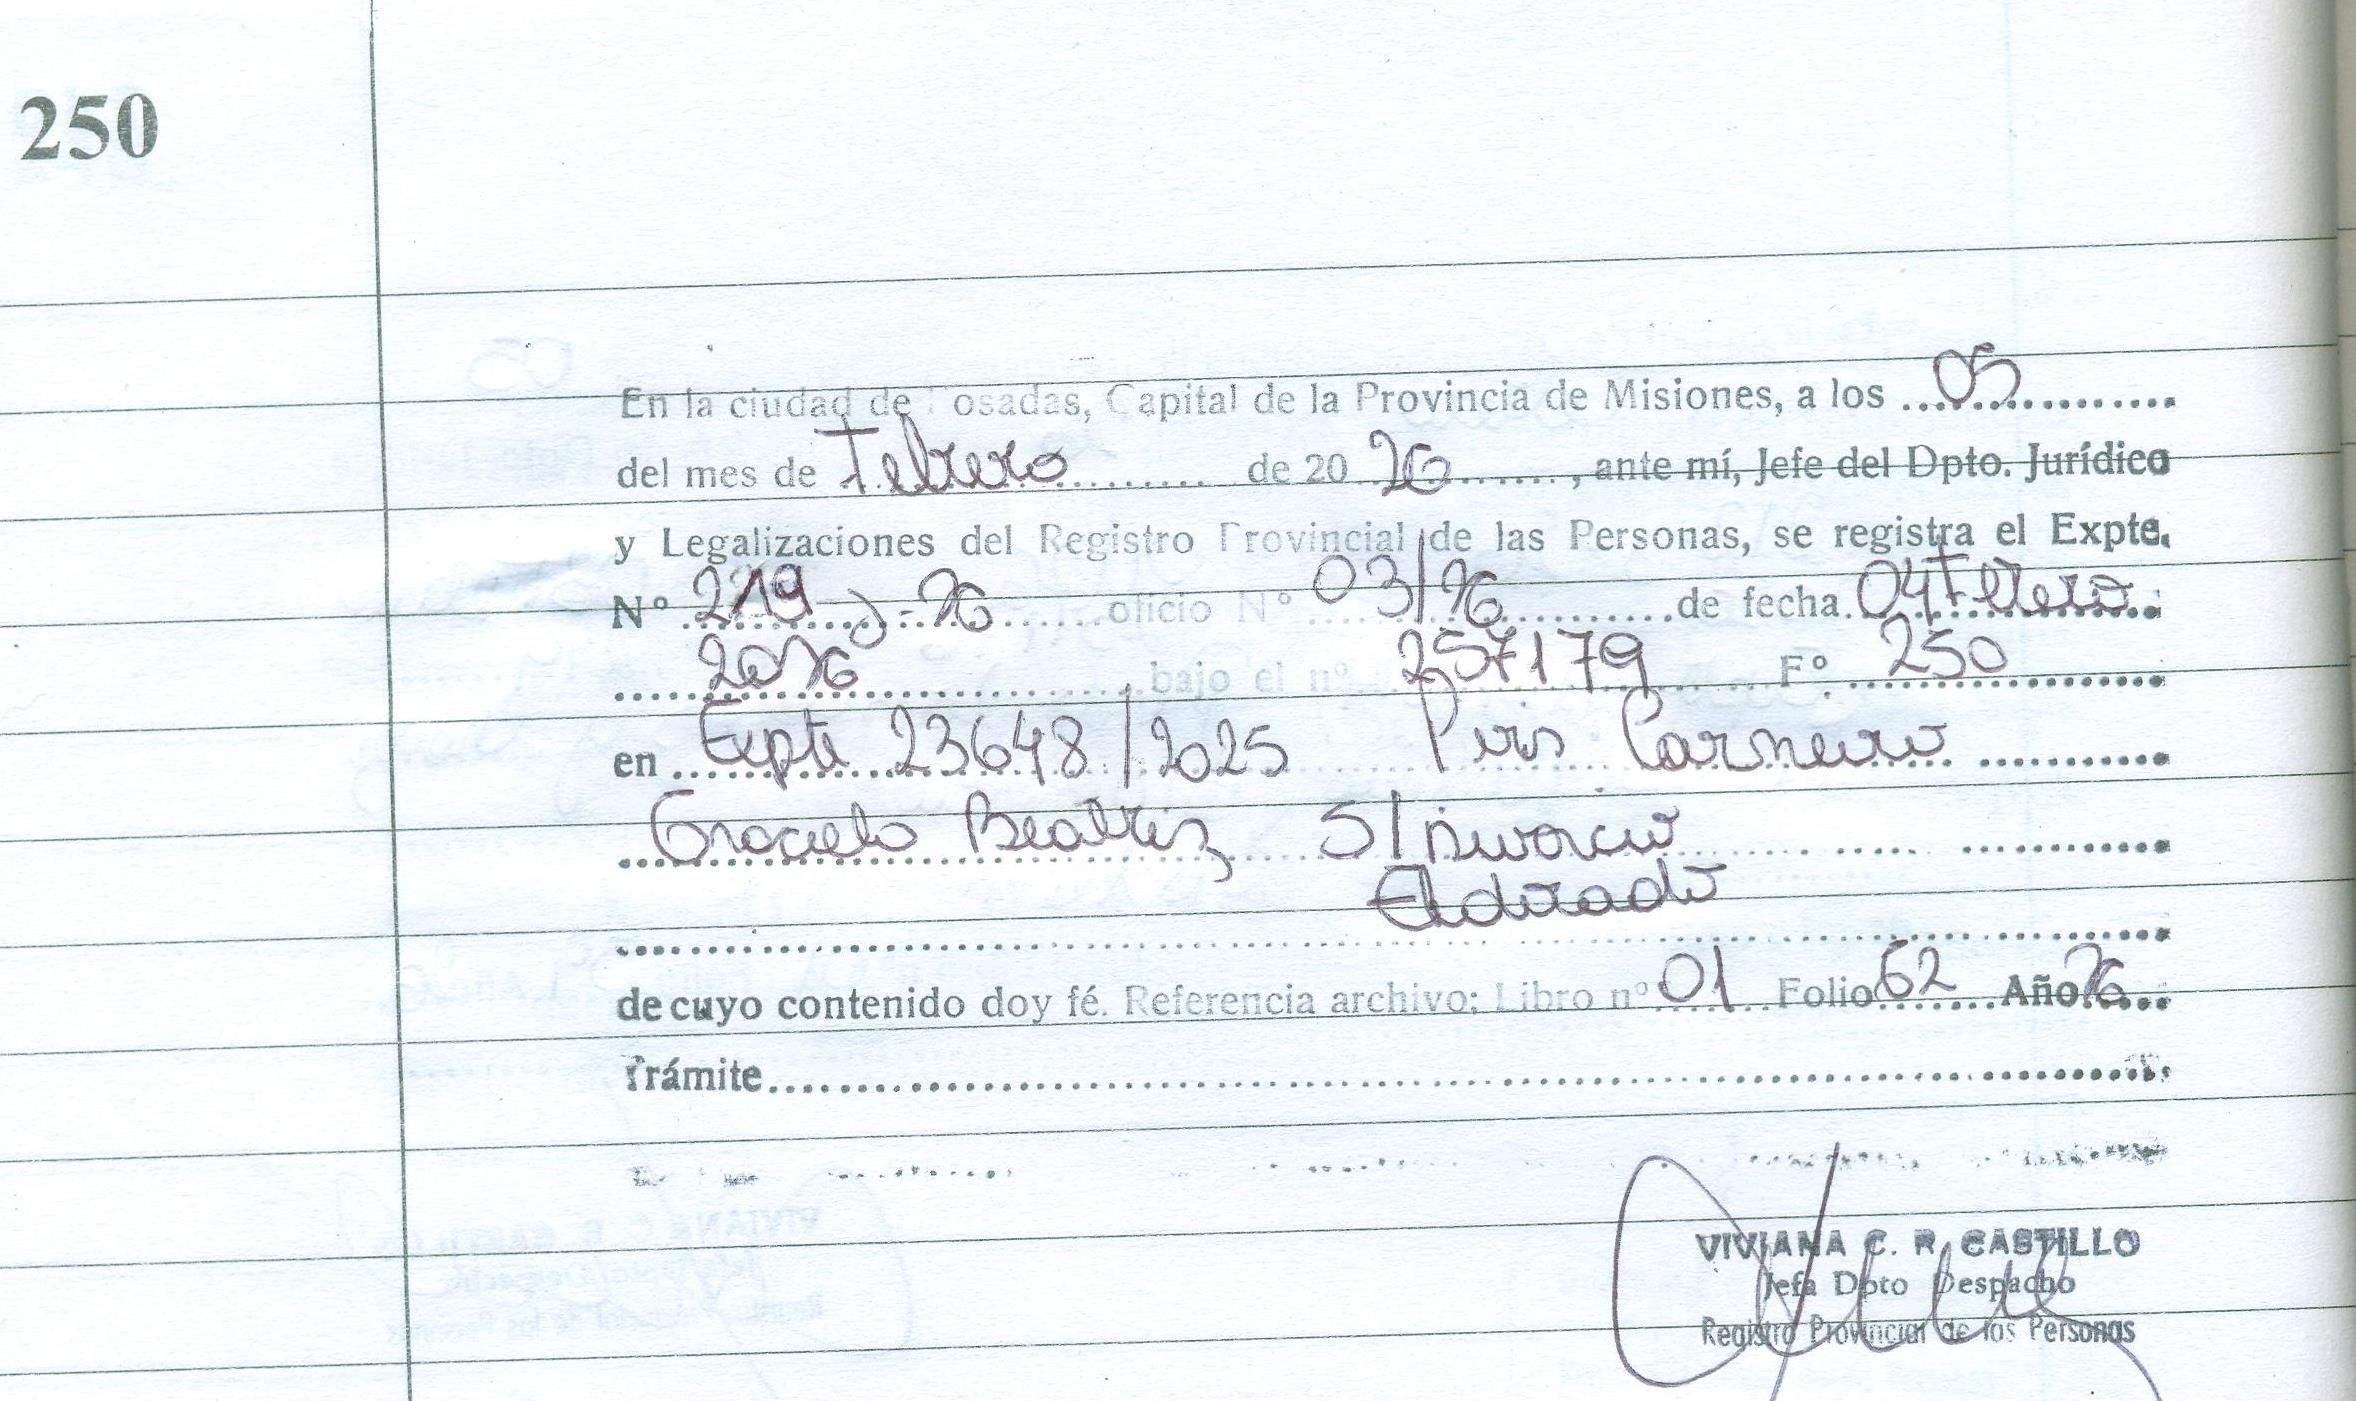 250
En la ciudad de Posadas, Capital de la Provincia de Misiones, a los 05
del mes de Febrero de 20 26, ante mí, Jefe del Dpto. Jurídico
y Legalizaciones del Registro Provincial de las Personas, se registra el Expte.
N° 219 J-26 oficio N° 03/26 de fecha 04 Febrero
2026 bajo el n° 257179 F° 250
en Expte 23648/2025 Piris Carneiro
Graciela Beatriz S/ Divorcio
Eldorado
de cuyo contenido doy fé. Referencia archivo: Libro n° 01 Folio 62 Año 26
Trámite
VIVIANA C. R. CASTILLO
Jefa Dpto Despacho
Registro Provincial de las Personas